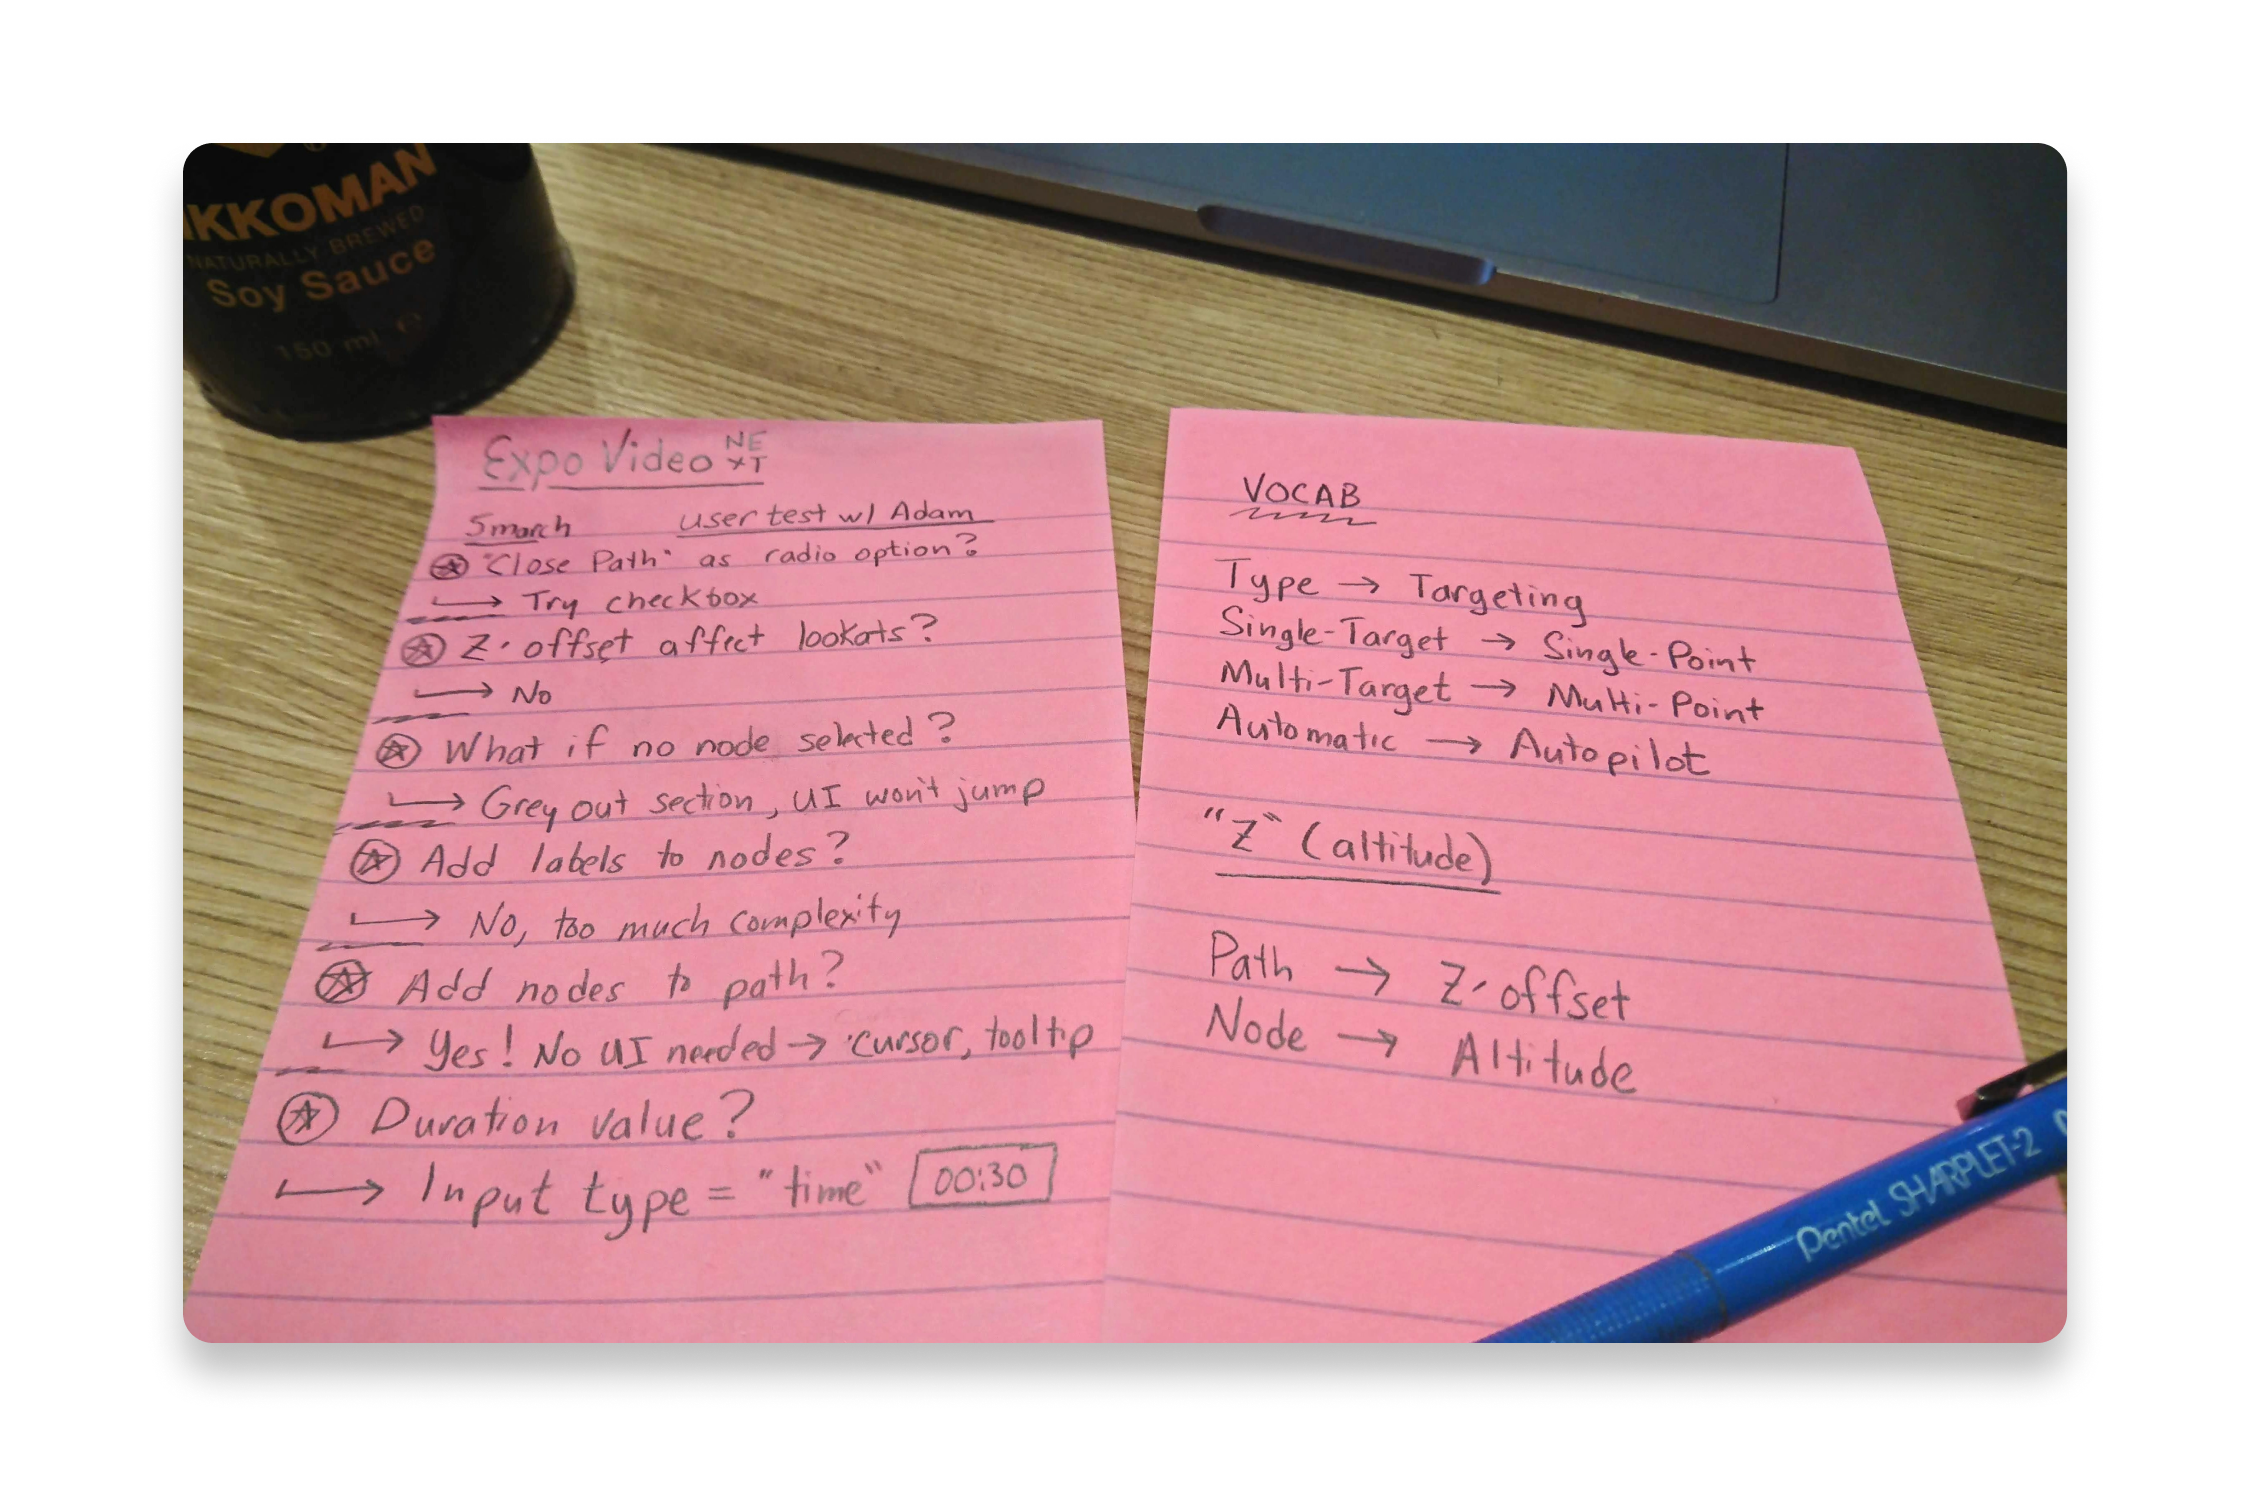 IKKOMAN
NATURALLY BREWED
Soy Sauce
150 ml e
Expo Video NEXT
5 march user test w/ Adam
"Close Path" as radio option?
↳ Try checkbox
Z-offset affect lookats?
↳ No
What if no node selected?
↳ Grey out section, UI won't jump
Add labels to nodes?
↳ No, too much complexity
Add nodes to path?
↳ Yes! No UI needed → cursor, tooltip
Duration value?
↳ Input type = "time" 00:30
VOCAB
Type → Targeting
Single-Target → Single-Point
Multi-Target → Multi-Point
Automatic → Autopilot
"Z" (altitude)
Path → Z-offset
Node → Altitude
Pentel SHARPLET-2